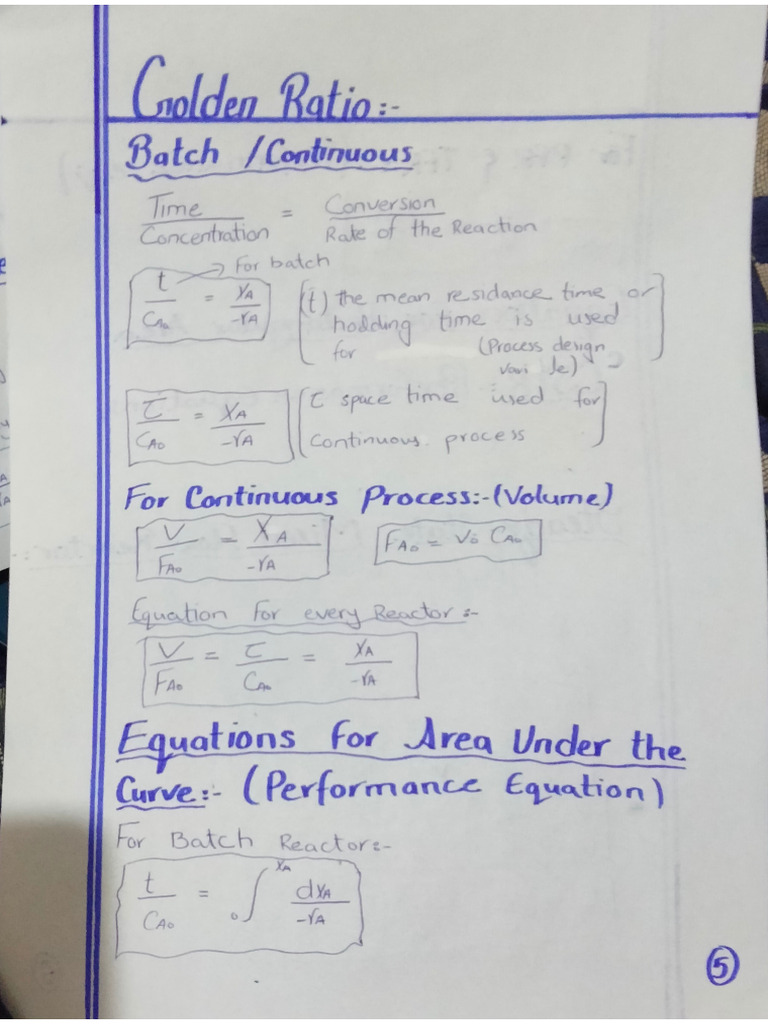 Golden Ratio:-
Batch / Continuous
Time / Concentration = Conversion / Rate of the Reaction
For batch
t / CA0 = XA / -rA
(t) the mean residance time or
holding time is used
for (Process design
vari le)
τ / CA0 = XA / -rA
τ space time used for
Continuous. process
For Continuous Process:- (Volume)
V / FA0 = XA / -rA
FA0 = V0 CA0
Equation For every Reactor:-
V / FA0 = τ / CA0 = XA / -rA
Equations For Area Under the
Curve:- (Performance Equation)
For Batch Reactor:-
t / CA0 = 0∫XA dXA / -rA
5